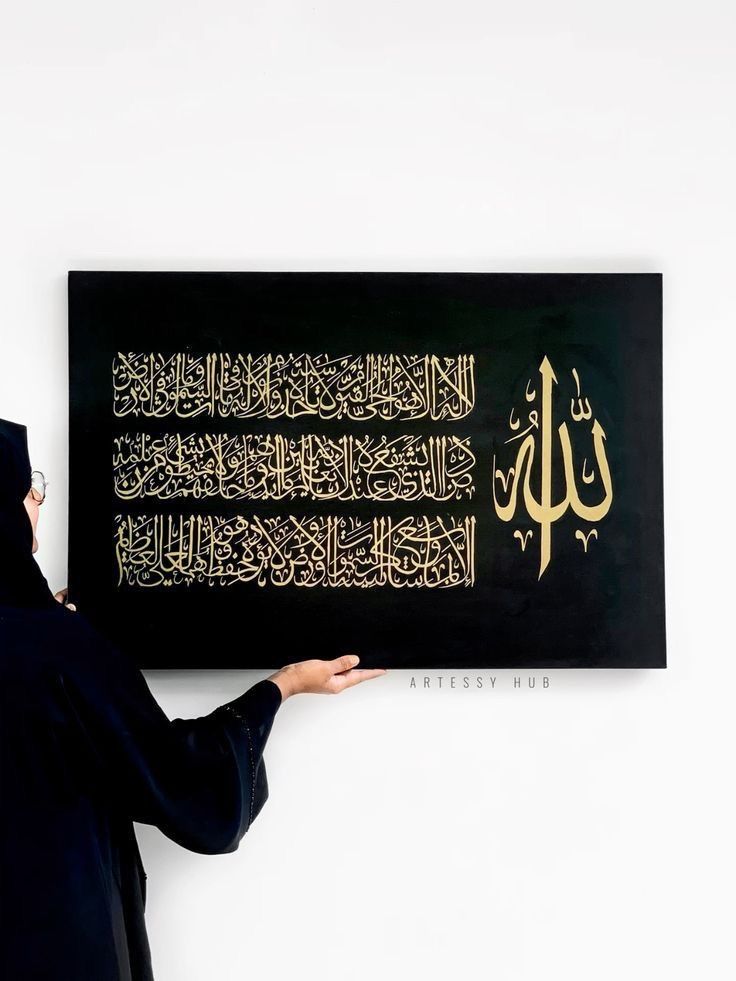 الله
لا إله إلا هو الحي القيوم لا تأخذه سنة ولا نوم له ما في السموات وما في الأرض
من ذا الذي يشفع عنده إلا بإذنه يعلم ما بين أيديهم وما خلفهم ولا يحيطون بشيء من علمه
إلا بما شاء وسع كرسيه السموات والأرض ولا يؤده حفظهما وهو العلي العظيم
ARTESSY HUB